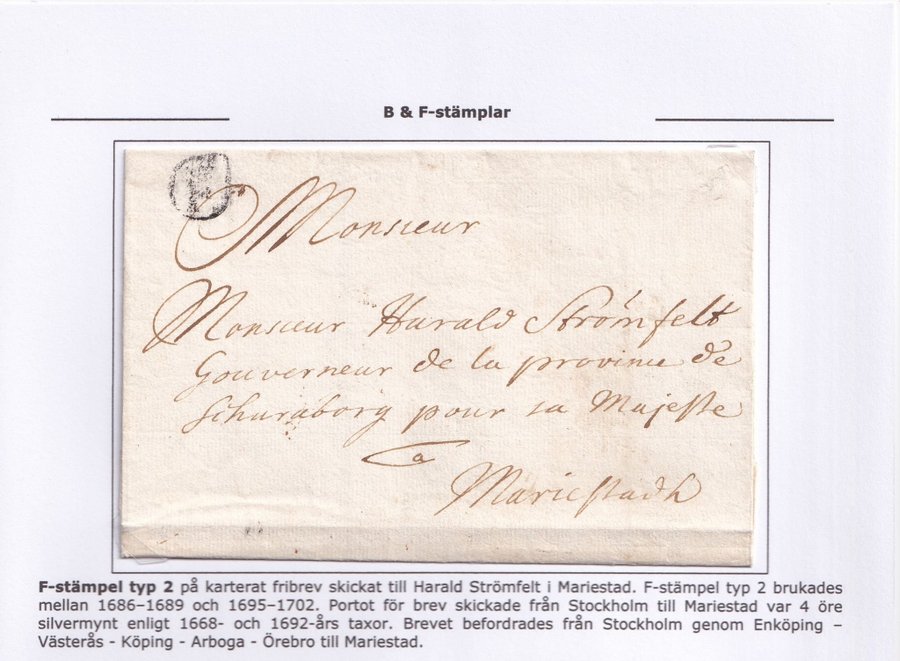 B & F-stämplar
F
Monsieur
Monsieur Harald Strömfelt
Gouverneur de la province de
Schuraborg pour sa Majesté
a
Mariestadh
F-stämpel typ 2 på karterat fribrev skickat till Harald Strömfelt i Mariestad. F-stämpel typ 2 brukades
mellan 1686–1689 och 1695–1702. Portot för brev skickade från Stockholm till Mariestad var 4 öre
silvermynt enligt 1668- och 1692-års taxor. Brevet befordrades från Stockholm genom Enköping –
Västerås - Köping - Arboga - Örebro till Mariestad.